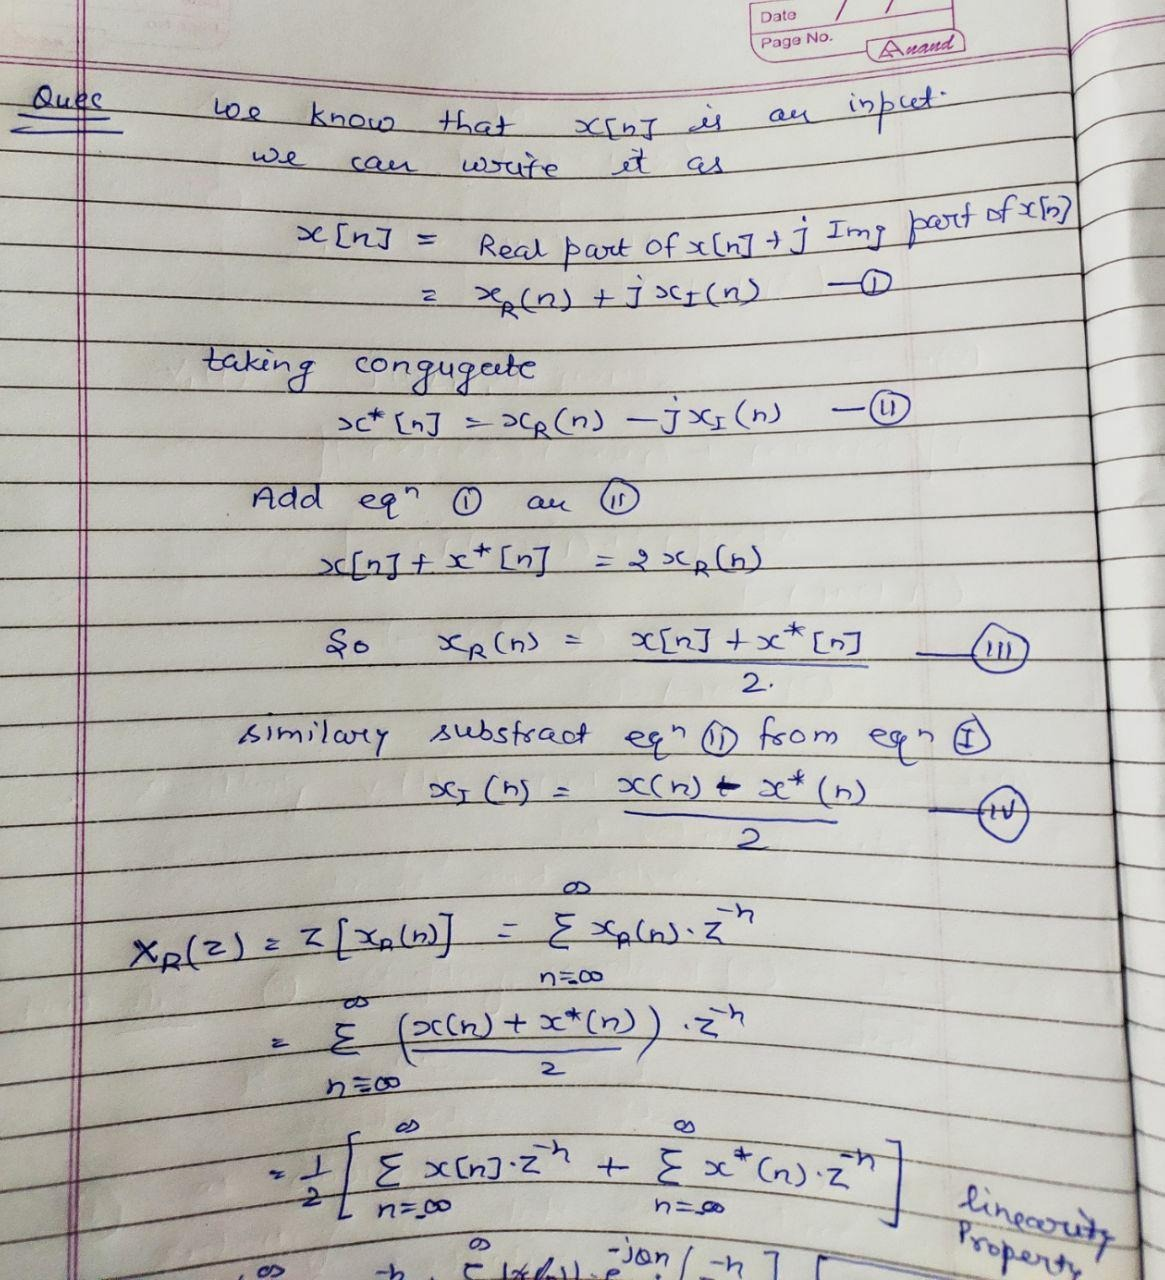 Date / /
Page No.
Anand
Ques we know that x[n] is an input.
we can write it as
x[n] = Real part of x[n] + j Img part of x[n]
= xR(n) + j xI(n) —(I)
taking congugate
x*[n] = xR(n) – j xI(n) —(II)
Add eqn (I) an (II)
x[n] + x*[n] = 2 xR(n)
So xR(n) = x[n] + x*[n] —(III)
2.
similary substract eqn (II) from eqn (I)
xI(n) = x(n) - x*(n) —(IV)
2
∞
XR(z) = Z[xR(n)] = Σ xR(n)·z^-n
n=-∞
∞
= Σ (x(n) + x*(n)) · z^-n
2
n=-∞
∞ ∞
= 1/2 [ Σ x[n]·z^-n + Σ x*(n)·z^-n ]
n=-∞ n=-∞
linearity
Property